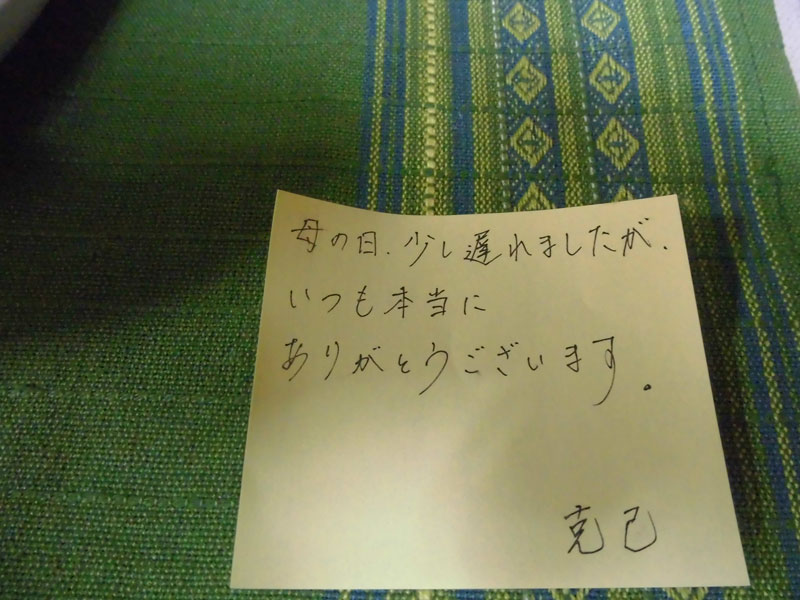 母の日、少し遅れましたが、
いつも本当に
ありがとうございます。
克己